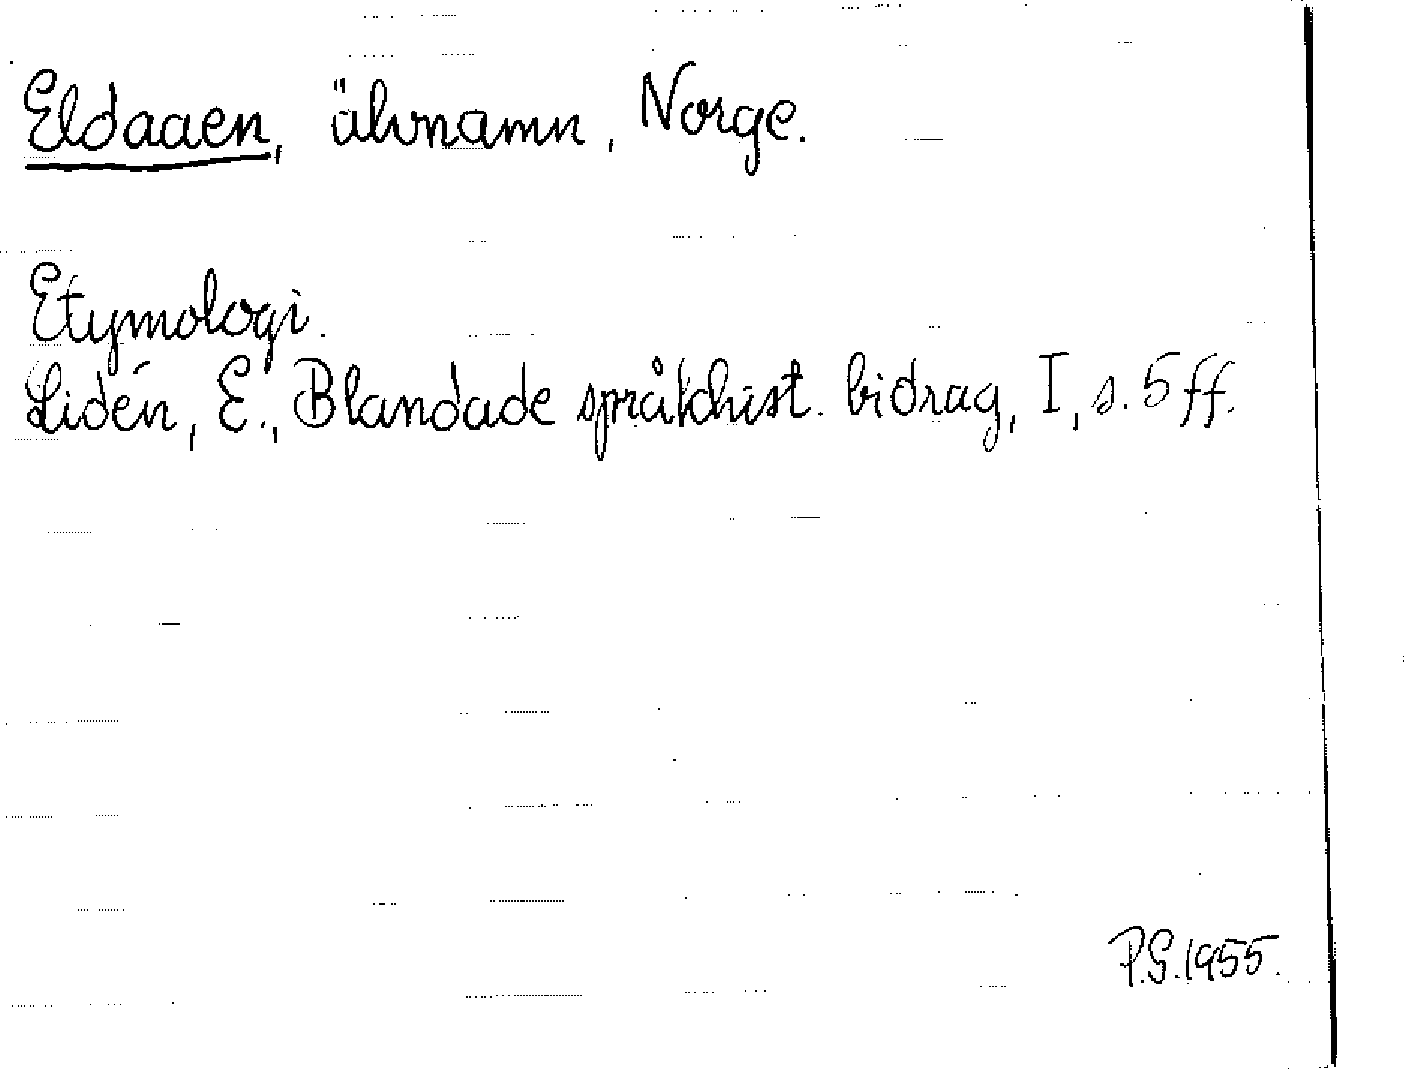 Eldaaen, älvnamn, Norge.
Etymologi.
Lidén, E., Blandade språkhist. bidrag, I, s. 5 ff.
P.G. 1955.